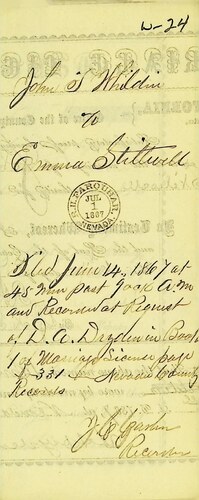 W-24
John S Whildin
To
Emma Stillwell
JUL
1
1867
NEVADA
Filed June 14, 1867 at
45 Min past 9 o'ck A.M
and Recorded at Request
of D. A. Dryden in Book
1 of Marriage License page
331 Nevada County
Records
Recorder